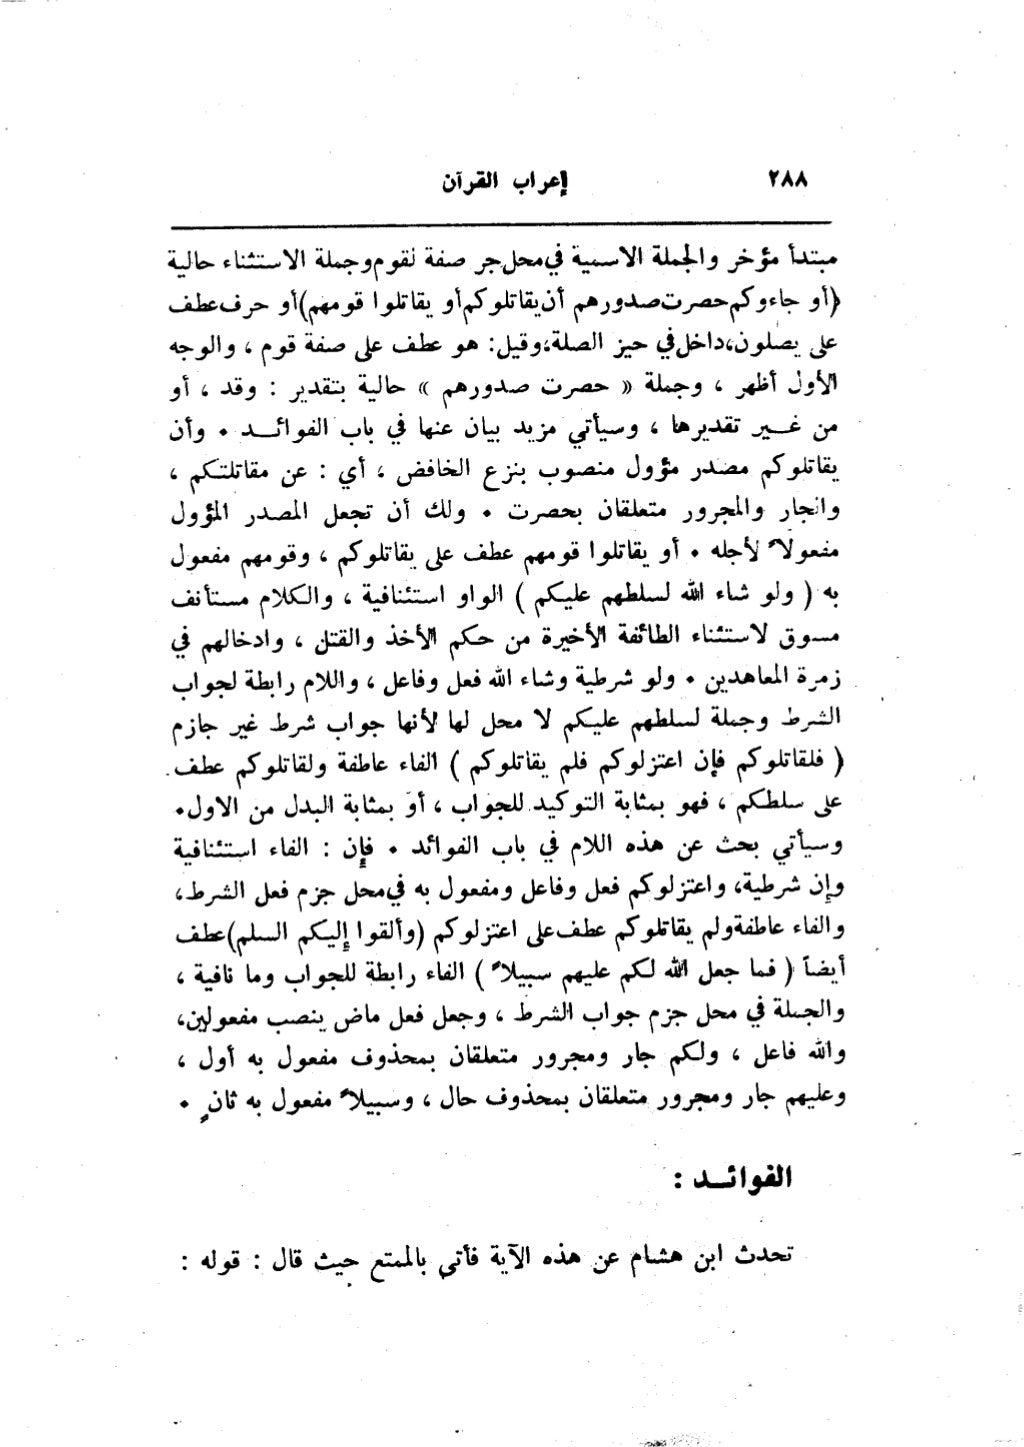 ٢٨٨ إعراب القرآن
مبتدأ مؤخر والجملة الاسمية في محل جر صفة لقوم وجملة الاستثناء حالية
(أو جاءوكم حصرت صدورهم أن يقاتلوكم أو يقاتلوا قومهم) أو حرف عطف
على يصلون، داخل في حيز الصلة، وقيل: هو عطف على صفة قوم ، والوجه
الأول أظهر ، وجملة « حصرت صدورهم » حالية بتقدير : وقد ، أو
من غير تقديرها ، وسيأتي مزيد بيان عنها في باب الفوائد . وأن
يقاتلوكم مصدر مؤول منصوب بنزع الخافض ، أي : عن مقاتلتكم ،
والجار والمجرور متعلقان بحصرت . ولك أن تجعل المصدر المؤول
مفعولاً لأجله . أو يقاتلوا قومهم عطف على يقاتلوكم ، وقومهم مفعول
به ( ولو شاء الله لسلطهم عليكم ) الواو استئنافية ، والكلام مستأنف
مسوق لاستثناء الطائفة الأخيرة من حكم الأخذ والقتل ، وادخالهم في
زمرة المعاهدين . ولو شرطية وشاء الله فعل وفاعل ، واللام رابطة لجواب
الشرط وجملة لسلطهم عليكم لا محل لها لأنها جواب شرط غير جازم
( فلقاتلوكم فإن اعتزلوكم فلم يقاتلوكم ) الفاء عاطفة ولقاتلوكم عطف
على سلطكم ، فهو بمثابة التوكيد للجواب ، أو بمثابة البدل من الاول .
وسيأتي بحث عن هذه اللام في باب الفوائد . فإن : الفاء استئنافية
وإن شرطية، واعتزلوكم فعل وفاعل ومفعول به في محل جزم فعل الشرط،
والفاء عاطفة ولم يقاتلوكم عطف على اعتزلوكم (وألقوا إليكم السلم) عطف
أيضاً ( فما جعل الله لكم عليهم سبيلاً ) الفاء رابطة للجواب وما نافية ،
والجملة في محل جزم جواب الشرط ، وجعل فعل ماض ينصب مفعولين،
والله فاعل ، ولكم جار ومجرور متعلقان بمحذوف مفعول به أول ،
وعليهم جار ومجرور متعلقان بمحذوف حال ، وسبيلاً مفعول به ثانٍ .
الفوائد :
تحدث ابن هشام عن هذه الآية فأتى بالممتع حيث قال : قوله :